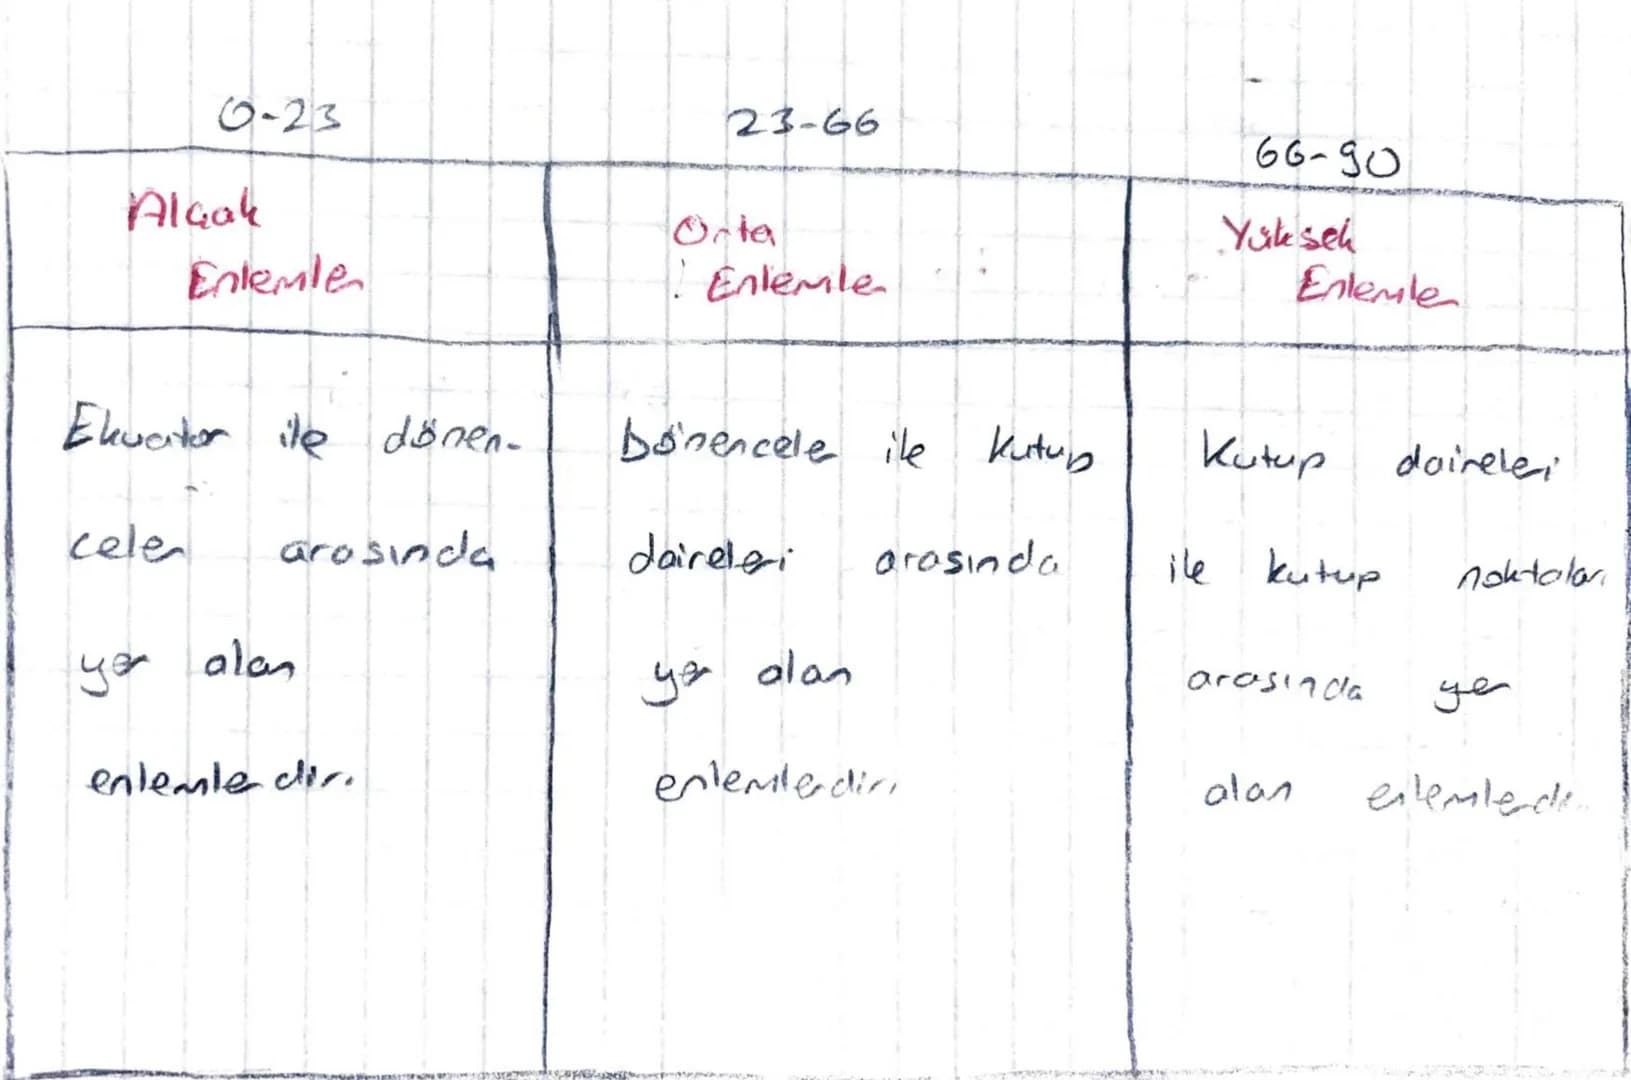 0-23
23-66
66-90
Alçak
Enlemler
Orta
Enlemler
Yüksek
Enlemler
Ekvator ile dönen-
celer arasında
yer alan
enlemlerdir.
Dönenceler ile Kutup
daireleri arasında
yer alan
enlemlerdir.
Kutup daireleri
ile kutup noktaları
arasında yer
alan enlemlerdir.